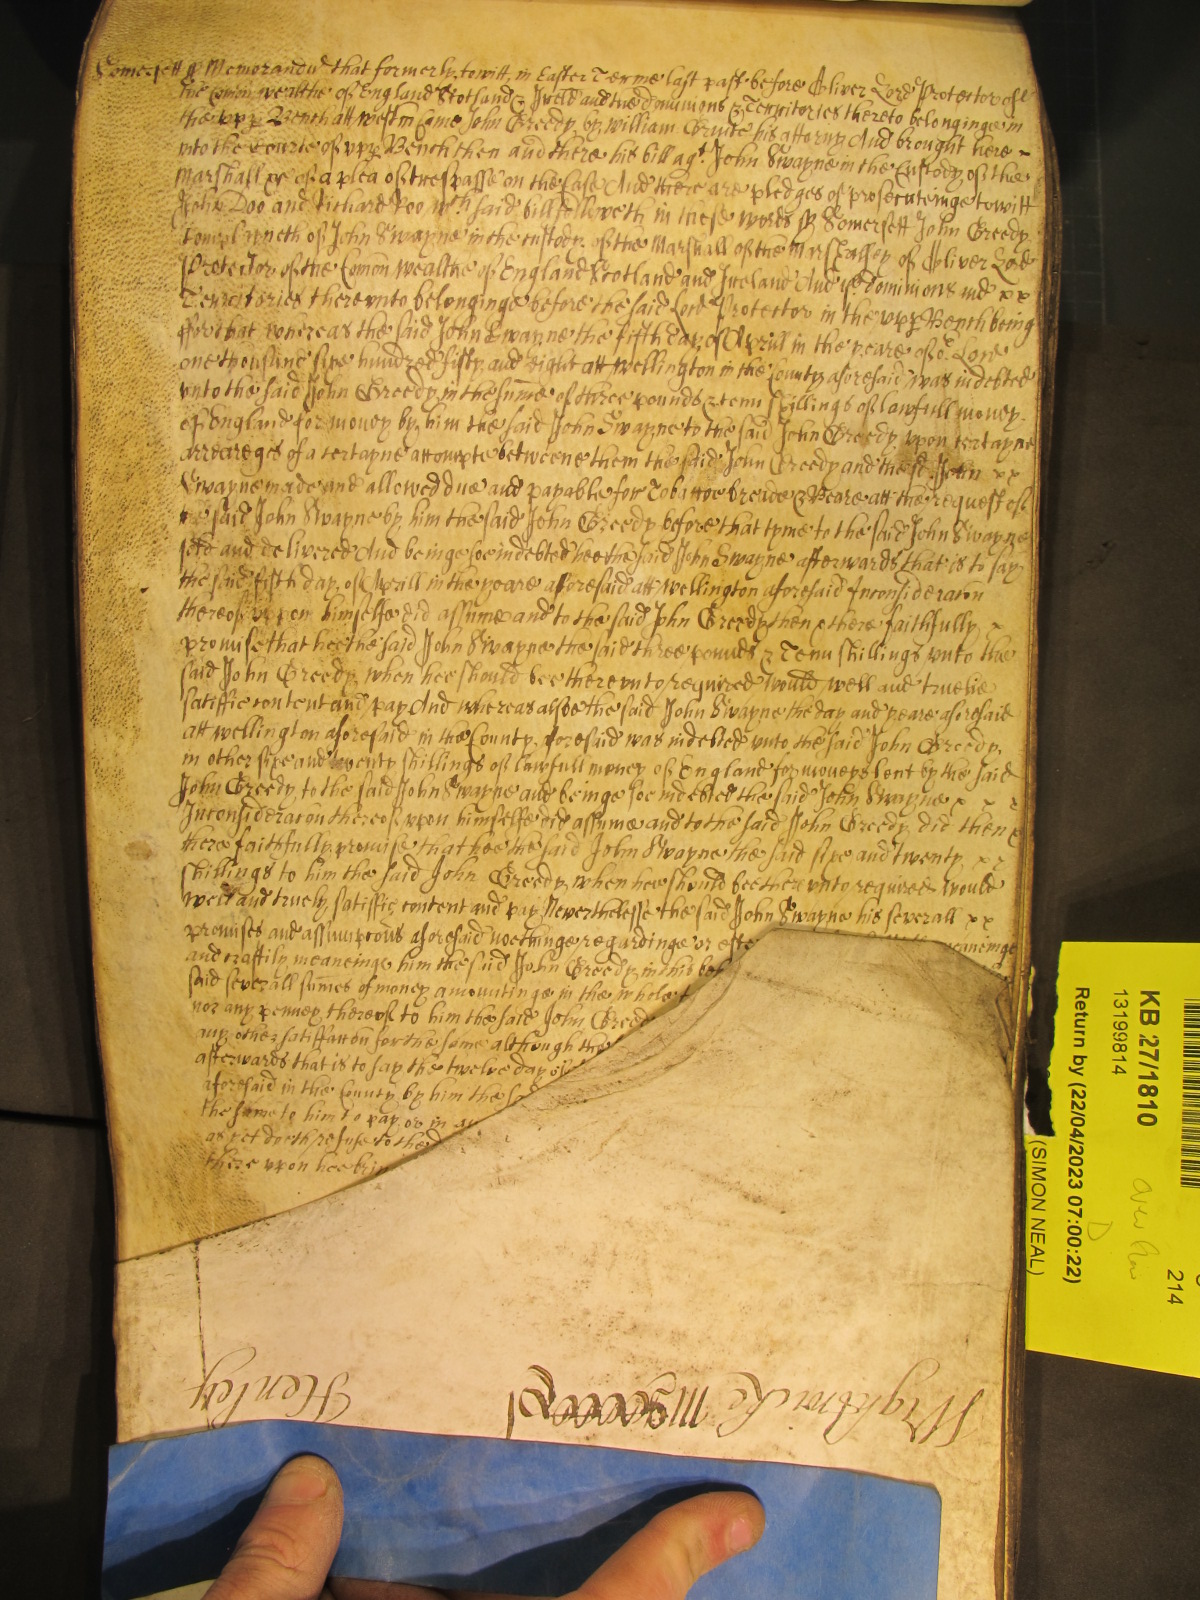 Somersett ss Memorandu that formerly towitt, in Easter Terme last past before Oliver Lord Protector of
the Comonwealthe of England Scotland & Ireld and the dominions & Territories thereto belonginge in
the vpp Bench att westm Came John Greedy by William his attorny And brought here
into the Courte of vpp Bench then and there his bill agt John Swayne in the Custody of the
Marshall &c of a plea of trespasse on the Case And there are pledges of prosecuteinge towitt
John Doo and Richard Roo wch said bill followeth in these words ss Somersett John Greedy
Complayneth of John Swayne in the custody of the Marshall of the Marshalsey of Oliver Lord
Protector of the Comonwealthe of England Scotland and Ireland And ye Dominions and
Territories therevnto belonginge before the said Lord Protector in the vpp Bench being
ffor that whereas the said John Swayne the fifth day of Aprill in the yeare of or Lord
one thousand sixe hundred fifty and Eight att Wellington in the County aforesaid was indebted
vnto the said John Greedy in the sume of three pounds & tenn shillings of lawfull money
of England for money by him the said John Swayne to the said John Greedy vpon certayne
arreareges of a certayne accompte betweene them the said John Greedy and the sd John
Swayne made and allowed due and payable for Tobaccoe breade & Beare att the request of
the said John Swayne by him the said John Greedy before that tyme to the said John Swayne
sold and delivered And beinge soe indebted hee the said John Swayne afterwards that is to say
the said fifth day of Aprill in the yeare aforesaid att Wellington aforesaid Inconsideracon
thereof vppon himselfe did assume and to the said John Greedy then & there faithfully
promise that hee the said John Swayne the said three pounds & Tenn shillings vnto the
said John Greedy when hee should bee therevnto required would well and truelie
satisfie content and pay And whereas alsoe the said John Swayne the day and yeare aforesaid
att Wellington aforesaid in the County aforesaid was indebted vnto the said John Greedy
in other sixe and twenty shillings of lawfull money of England for moneys lent by the said
John Greedy to the said John Swayne and beinge soe indebted the said John Swayne
Inconsideracon thereof vpon himselfe did assume and to the said John Greedy did then &
there faithfully promise that hee the said John Swayne the said sixe and twenty
shillings to him the said John Greedy when hee should bee therevnto required would
well and truely satisfie content and pay Neverthelesse the said John Swayne his severall
promises and assumpcons aforesaid noethinge regardinge or
and craftily meaneinge him the said John Greedy in his
said severall sumes of money amountinge in the whole
nor any penney thereof to him the said John Greed
any other satisfaccon for the same although
afterwards that is to say the twelve day of
aforesaid in the County by him the
the same to him to pay or in
as yet doth refuse to
there vpon hee
Wightwicke
Henley
KB 27/1810
13199814
Return by (22/04/2023 07:00:22)
(SIMON NEAL)
214
D